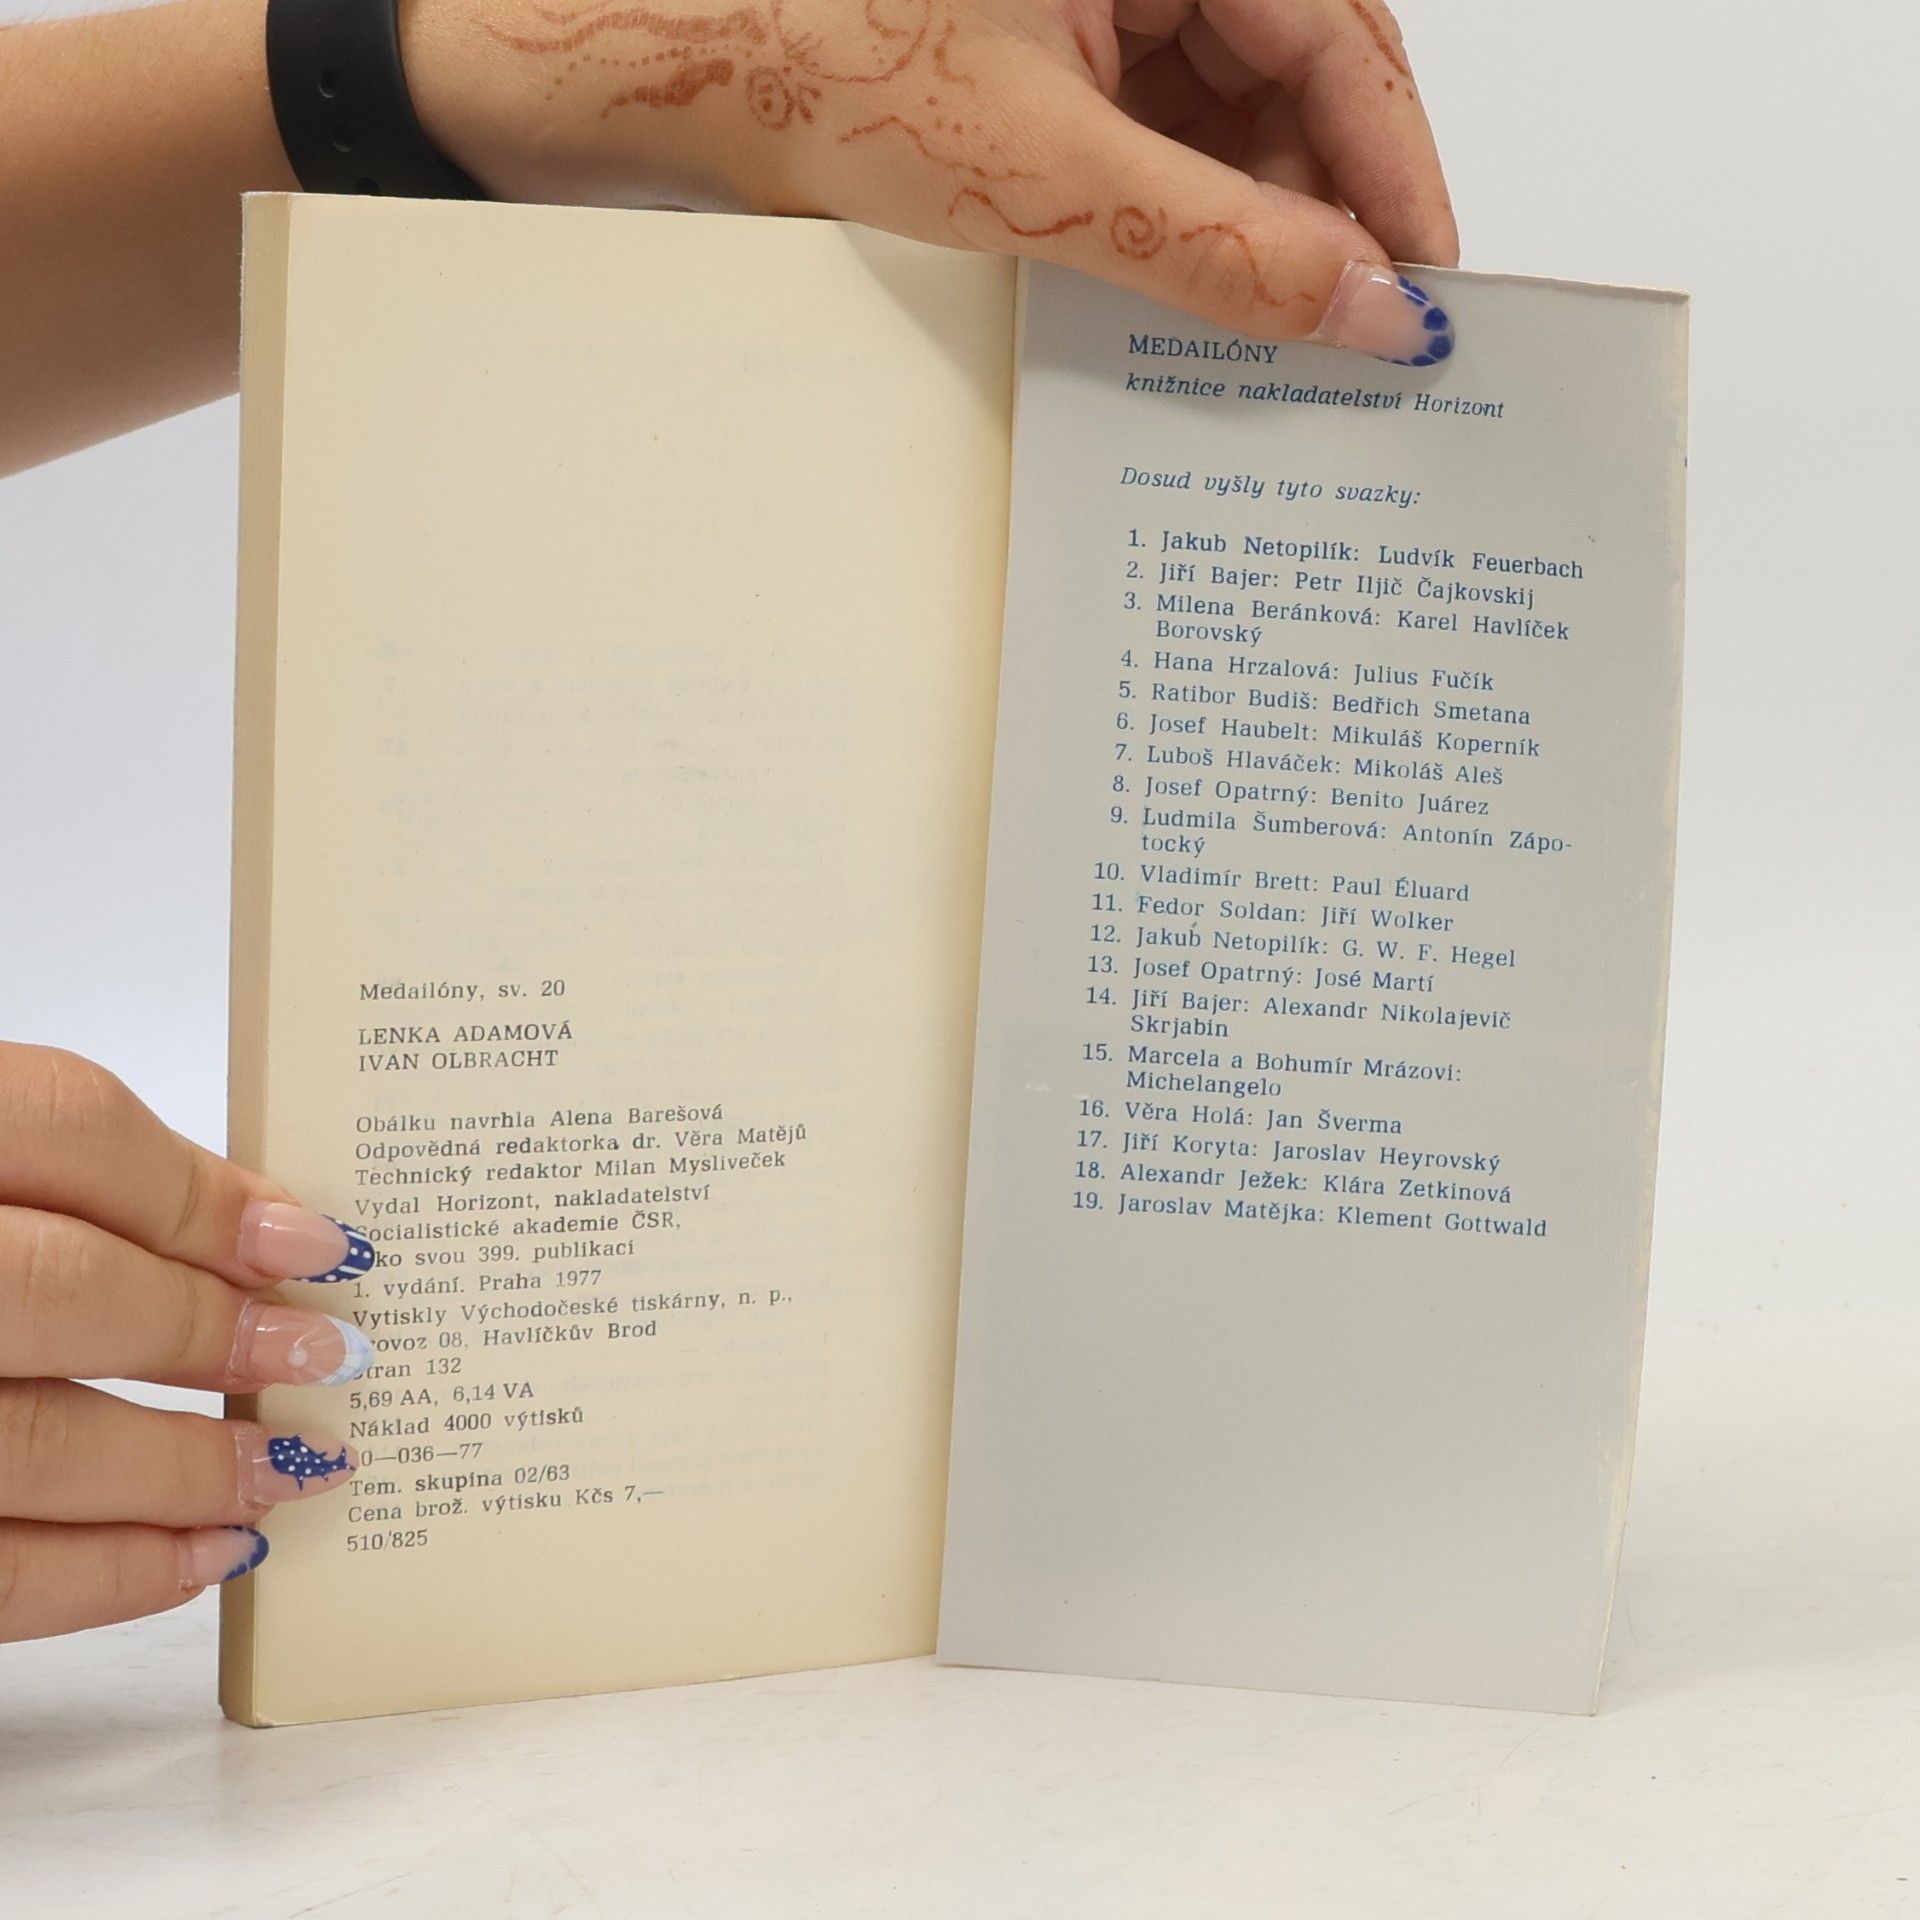 Medailóny, sv. 20
LENKA ADAMOVÁ
IVAN OLBRACHT
Obálku navrhla Alena Barešová
Odpovědná redaktorka dr. Věra Matějů
Technický redaktor Milan Mysliveček
Vydal Horizont, nakladatelství
Socialistické akademie ČSR,
ko svou 399. publikaci
1. vydání. Praha 1977
Vytiskly Východočeské tiskárny, n. p.,
rovoz 08, Havlíčkův Brod
Stran 132
5,69 AA, 6,14 VA
Náklad 4000 výtisků
0—036—77
Tem. skupina 02/63
Cena brož. výtisku Kčs 7,—
510/825
MEDAILÓNY
knižnice nakladatelství Horizont
Dosud vyšly tyto svazky:
1. Jakub Netopilík: Ludvík Feuerbach
2. Jiří Bajer: Petr Iljič Čajkovskij
3. Milena Beránková: Karel Havlíček
Borovský
4. Hana Hrzalová: Julius Fučík
5. Ratibor Budiš: Bedřich Smetana
6. Josef Haubelt: Mikuláš Koperník
7. Luboš Hlaváček: Mikoláš Aleš
8. Josef Opatrný: Benito Juárez
9. Ludmila Šumberová: Antonín Zápo-
tocký
10. Vladimír Brett: Paul Éluard
11. Fedor Soldan: Jiří Wolker
12. Jakub Netopilík: G. W. F. Hegel
13. Josef Opatrný: José Martí
14. Jiří Bajer: Alexandr Nikolajevič
Skrjabin
15. Marcela a Bohumír Mrázovi:
Michelangelo
16. Věra Holá: Jan Šverma
17. Jiří Koryta: Jaroslav Heyrovský
18. Alexandr Ježek: Klára Zetkinová
19. Jaroslav Matějka: Klement Gottwald